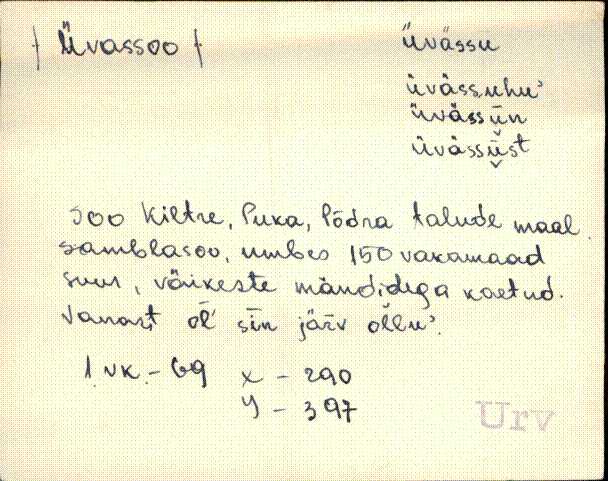 Üvassoo
üvässu
üvässuhu'
üvässün
üvässüst
soo Kiltre, Puka, Põdra talude maal.
samblasoo, umbes 150 vakamaad
suur, väikeste mändidega kaetud.
Vanast õl' sīn järv õllu'.
1. vk. - 69 x - 290
y - 397
Urv